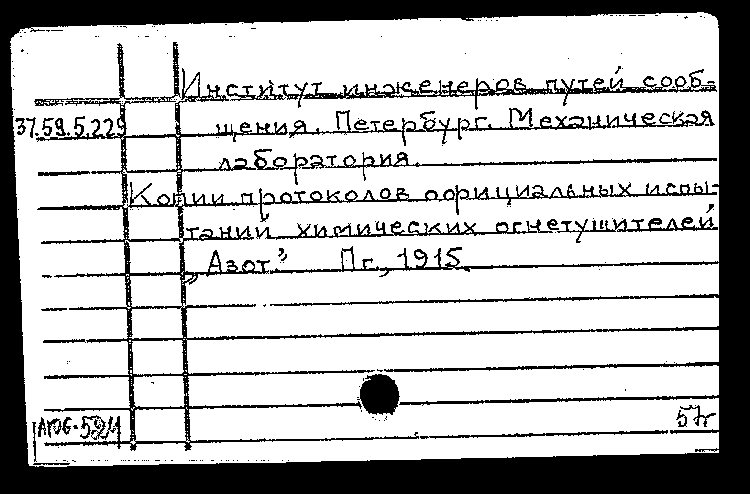 Институт инженеров путей сооб-
37.59.5.229 щения. Петербург. Механическая
лаборатория.
Копии протоколов официальных испы-
таний химических огнетушителей
„Азот." Пг., 1915.
57г